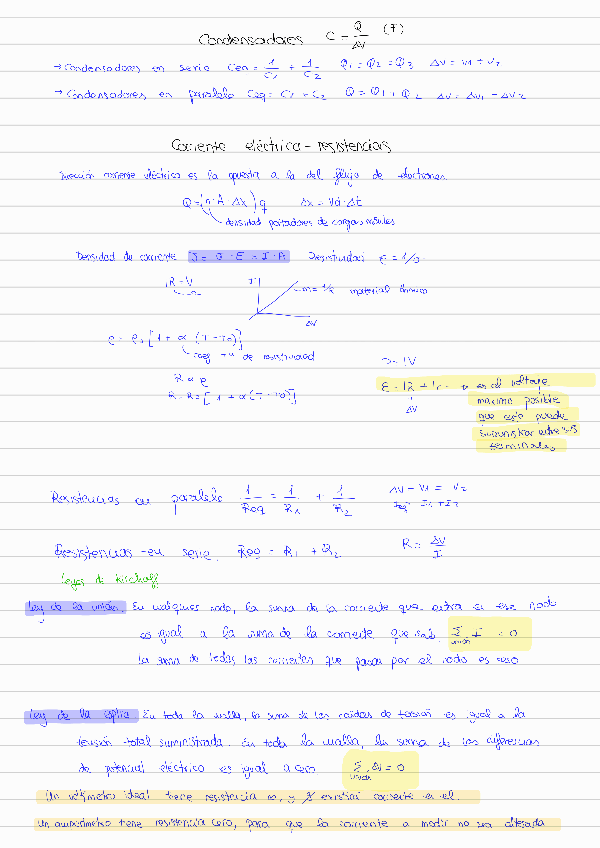 Condensadores C = Q/ΔV (F)
→ Condensadores en serie Ceq = 1/C1 + 1/C2 Q1 = Q2 = Q3 ΔV = V1 + V2
→ Condensadores en paralelo Ceq = C1 + C2 Q = Q1 + Q2 ΔV = ΔV1 = ΔV2
Corriente eléctrica - resistencias
Dirección corriente eléctrica es la opuesta a la del flujo de electrones
Q = (n·A·Δx) q Δx = Vd·Δt
densidad portadores de cargas móviles
Densidad de corriente J = σ·E = I·A Resistividad ρ = 1/σ
I m = 1/R material óhmico
ΔV
ρ = ρ0 [1 + α (T - T0)]
coef de resistividad
R ∝ ρ
R = R0 [1 + α (T - T0)]
es el voltaje
ΔV máximo posible
que esta puede
suministrar entre sus
terminales
Resistencias en paralelo 1/Req = 1/R1 + 1/R2 ΔV = V1 = V2
Ieq = I1 + I2
Resistencias en serie. Req = R1 + R2 R = ΔV/I
Leyes de Kirchoff
Ley de la unión. En cualquier nodo, la suma de la corriente que entra en ese nodo
es igual a la suma de la corriente que sale. Σ I = 0
unión
La suma de todas las corrientes que pasan por el nodo es cero
Ley de la espira. En toda la malla, la suma de las caídas de tensión es igual a la
tensión total suministrada. En toda la malla, la suma de las diferencias
de potencial eléctrico es igual a cero Σ ΔV = 0
Un voltímetro ideal tiene resistencia ∞, y existirá corriente en el.
Un amperímetro tiene resistencia cero, para que la corriente a medir no sea alterada